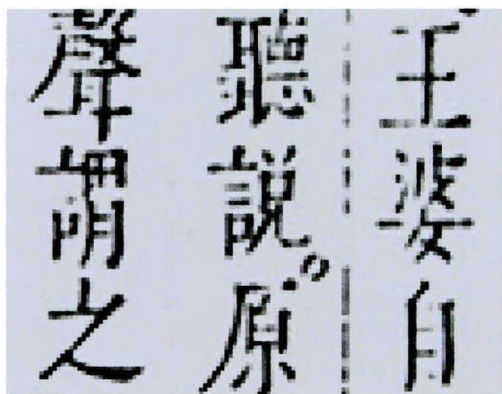 王婆自
聽説。原
聲謂之